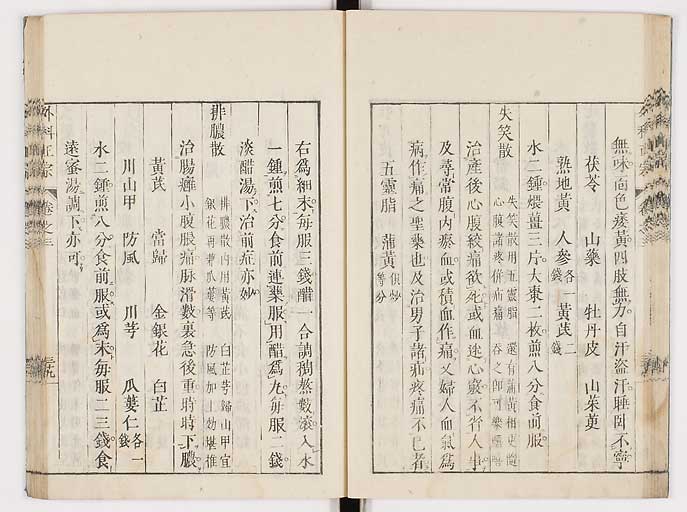 無味面色痿黃四肢無力自汗盜汗睡臥不寧
茯苓 山藥 牡丹皮 山茱萸
熟地黃 人參各一錢 黃芪二
水二鍾煨薑三片大棗二枚煎八分食前服
失笑散
失笑散用五靈脂 還有蒲黃相更隨
心腹諸疼併疝痛 吞之即可樂
治產後心腹絞痛欲死或血迷心竅不省人事
及尋常腹內瘀血或積血作痛又婦人血氣為
病作痛之聖藥也及治男子諸疝疼痛不已者
五靈脂 蒲黃俱炒等分
右為細末每服三錢醋一合調稠熬數滾入水
一鍾煎七分食前連藥服用醋為丸每服二錢
淡醋湯下治前症亦妙
排膿散
排膿散內用黃芪 白芷芎歸山甲宜
銀花再兼瓜蔞等 防風加上効堪推
治腸癰小腹脹痛脉滑數裏急後重時時下膿
黃芪 當歸 金銀花 白芷
川山甲 防風 川芎 瓜蔞仁各一錢
水二鍾煎八分食前服或為末每服二三錢食
遠蜜湯調下亦可
外科正宗 卷之三